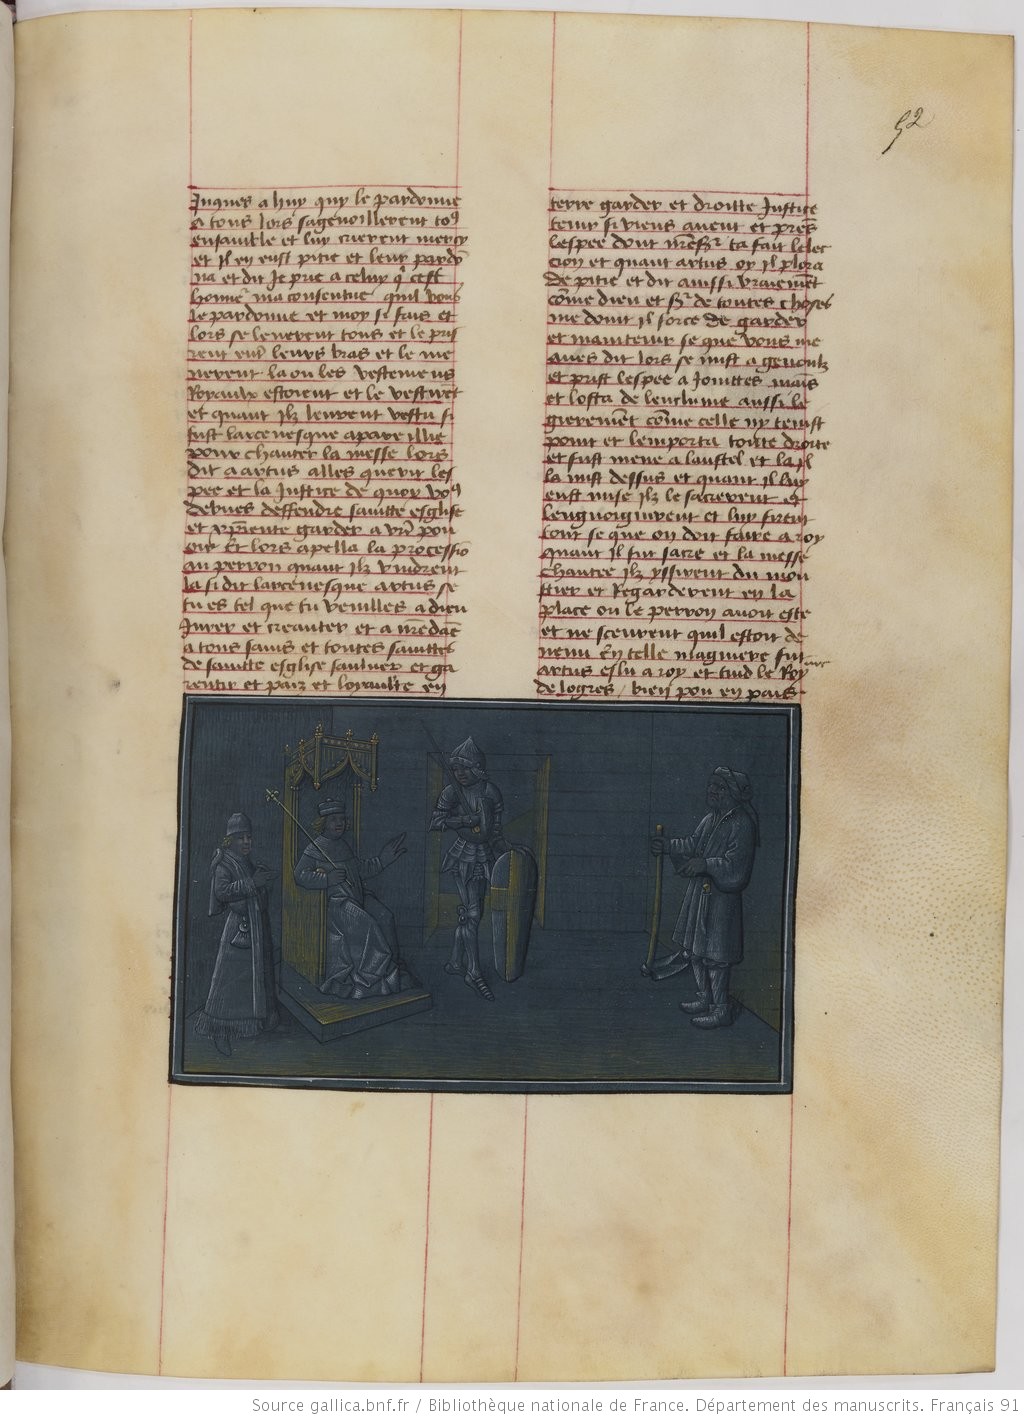 52
Juques a huy quy le pardonne
a tous lors sagenoillerent to9
ensamble et luy crierent mercy
et il en eust pitie et leur pardō
na et dit Je prie a celuy q̄ cest
honne² ma consentue quil vous
le pardonne et moy si fais et
lors se leverent tous et le pri
rent entr̄ leurs bras et le me
nerent la ou les vestemens
Royaulx estoient et le vestirēt
et quant ilz leurent vestu si
fust larcevesque apareillie
pour chanter la messe lors
dit a artus alles querir les
pee et la Justice de quoy vo9
devues deffendre saintte esglise
et xp̄iente garder a vr̄e pou
oir Et lors apella la processiō
au perron quant ilz vindrent
la si dit larcevesque artus se
tu es tel que tu veuilles a dieu
Jurer et creanter et a mēdāē
a tous sains et touttes sainttes
de saintte esglise saulver et ga
rentir et paix et loyaulte en
terre garder et droitte Justice
tenir si viens avent et prens
lespee dont nrēss² ta fait lelec
cion et quant artus oy il plora
de pitie et dit aussi vraiemēt
cōme dieu et s² de touttes choses
me doint il force de garder
et maintenir se que vous me
aves dit lors se mist a genoulz
et prist lespee a Jointtes mains
et losta de lenclume aussi le
gierement cōme celle ny tenist
point et lemporta toutte droitte
et fust mene a laustel et la il
la mist dessus et quant il luy
eust mise ilz le sacrerent et
lenguoignirent et luy firent
tout se que on doit faire a roy
quant il fut sacre et la messe
chantee ilz yssirent du mon
stier et Regarderent en la
place ou le perron avoit este
et ne sceurent quil estoit de
venu En telle magniere fut
artus eslu a roy et tind le Roy aume
de logres / bien pou en pais
Source gallica.bnf.fr / Bibliothèque nationale de France. Département des manuscrits. Français 91